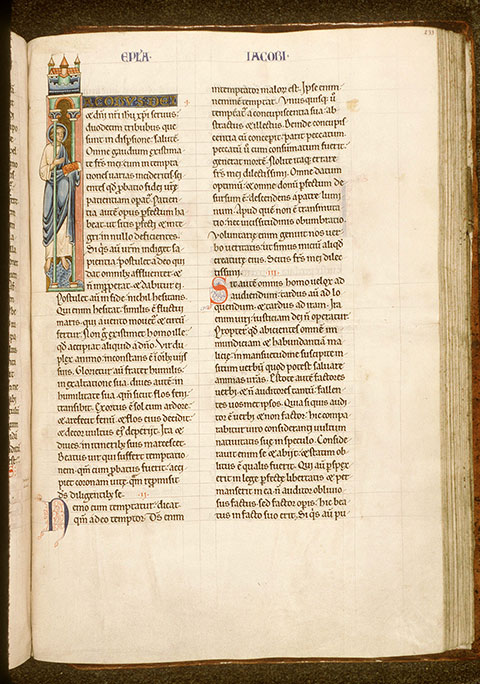 EPLA. IACOBI.
IACOBUS DEI
⁊ dñi nr̃i ihũ xp̃i seruus
duodecim tribubus que
sunt in dispsione salutẽ.
Omne gaudium existima
te frs̃ mei cum in tempta
tiones uarias incideritis sci
entes qd̃ p̱batio fidei ur̃e
patientiam opat̃. Patien
tia autẽ opus p̱fectum ha
beat ut sitis p̱fecti ⁊ inte
gri in nullo deficientes.
Si q̃s aũ ur̃m indiget sa
pientia postulet a deo qui
dat omnib; affluenter ⁊
ñ improperat ⁊ dabitur ei.
Postulet aũ in fide nichil hesitans.
Qui enim hesitat similis ẽ fluctuj
maris qui a uento mouet̃ ⁊ circũ
fertur. Non g̃ existimet homo ille
qd̃ accipiat aliquid a dñõ. Vir du
plex animo inconstans ẽ in oib; uijs
suis. Glorietur aũ frater humilis
in exaltatione sua. diues autẽ in
humilitate sua qm̃ sicut flos feni
transibit. Exortus ẽ sol cum ardore
⁊ arefecit fenũ ⁊ flos eius decidit
⁊ decor uultus ej̃ deperijt. Ita ⁊
diues in itinerib; suis marcescet.
Beatus uir qui suffert temptatio
nem. qm̃ cum p̱batus fuerit acci
piet coronam uite. qm̃ rep̱misit
ds̃ diligentib; se. .ii.
Nemo cum temptatur dicat
qm̃ a deo temptor. Ds̃ enim
intemptator malor̃ est. Ipse enim
neminẽ temptat. Vnusquisq; ũ
temptat̃ a concupiscentia sua ab
stractus ⁊ illectus. Deinde concupi
centia cũ concepit parit peccatum
peccatũ ũ cum consũmatum fuerit
generat mortẽ. Nolite itaq; errare
frs̃ mei dilectissimi. Omne datum
optimũ ⁊ omne donũ p̱fectum de
sursum ẽ descendens a patre lumi
num. Apud quẽ non ẽ transmuta
tio nec uicissitudinis obumbratio.
Voluntarie enim genuit nos uer
bo ueritatis ut simus iniciũ aliqd̃
creature eius. Scitis frs̃ mei dilec
tissimi. .iii.
Sit autẽ omnis homo uelox ad
audiendum. tardus aũ ad lo
quendum ⁊ tardus ad iram. Ira
enim uiri iusticiam dei ñ operatur.
Propter qd̃ abicientes omnẽ im
mundiciam ⁊ habundantiã ma
licie. in mansuetudine suscipite in
situm uerbũ quod potest saluare
animas ur̃as. Estote autẽ factores
uerbi ⁊ ñ auditores tantũ. fallen
tes uos metipsos. Quia si quis audi
tor ẽ uerbi ⁊ non factor. hic compa
rabitur uiro considerantj uultum
natiuitatis sue in speculo. Conside
rauit enim se ⁊ abijt. ⁊ statim ob
litus ẽ qualis fuerit. Qui aũ p̱spex
erit in lege p̱fecte libertatis ⁊ per
manserit in ea ñ auditor obliuio
sus factus. sed factor opis. hic bea
tus in facto suo erit. Si q̃s aũ pu